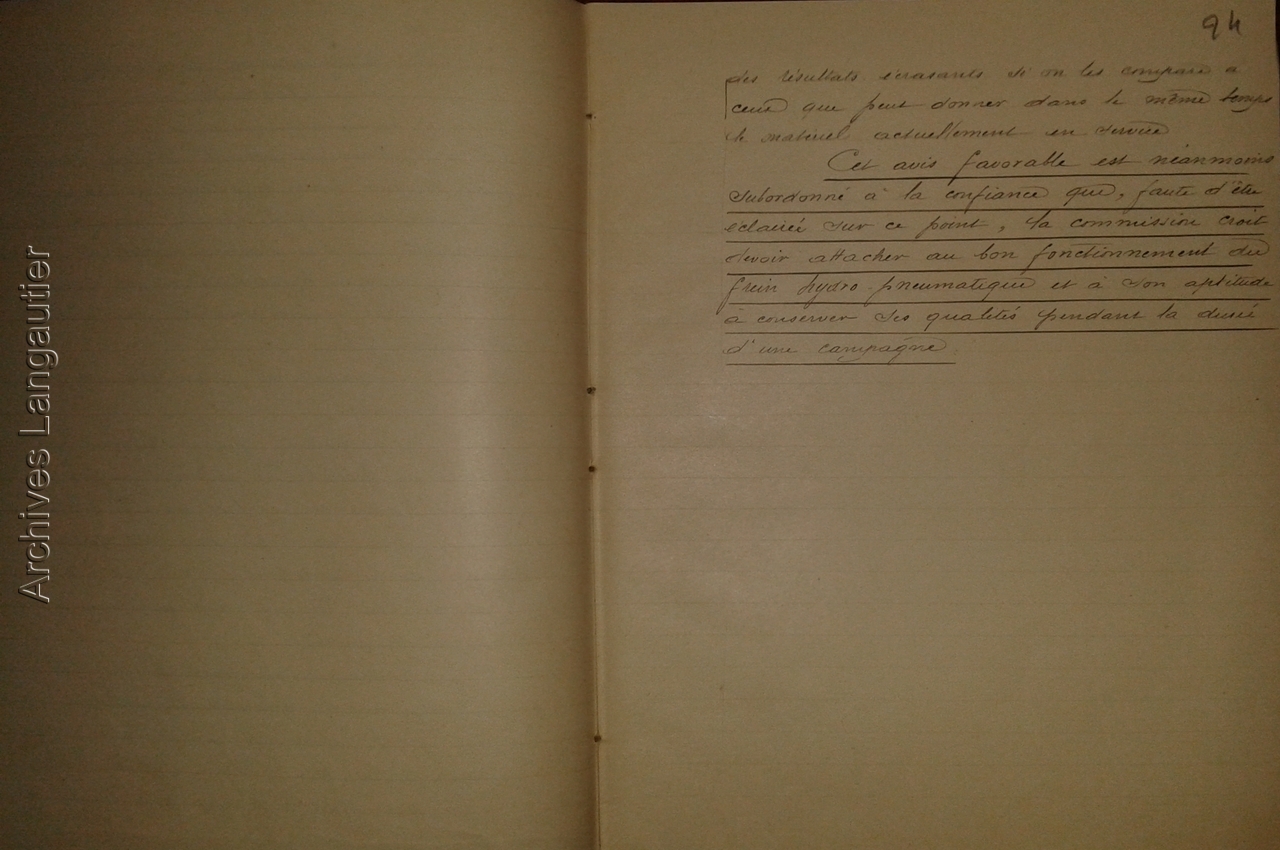 Archives Langautier
94
des résultats écrasants si on les compare a
ceux que peut donner dans le même temps
le matériel actuellement en service
Cet avis favorable est néanmoins
subordonné à la confiance que, faute d'être
eclairée sur ce point, la commission croit
devoir attacher au bon fonctionnement du
frein hydro-pneumatique et à son aptitude
à conserver ses qualités pendant la durée
d'une campagne